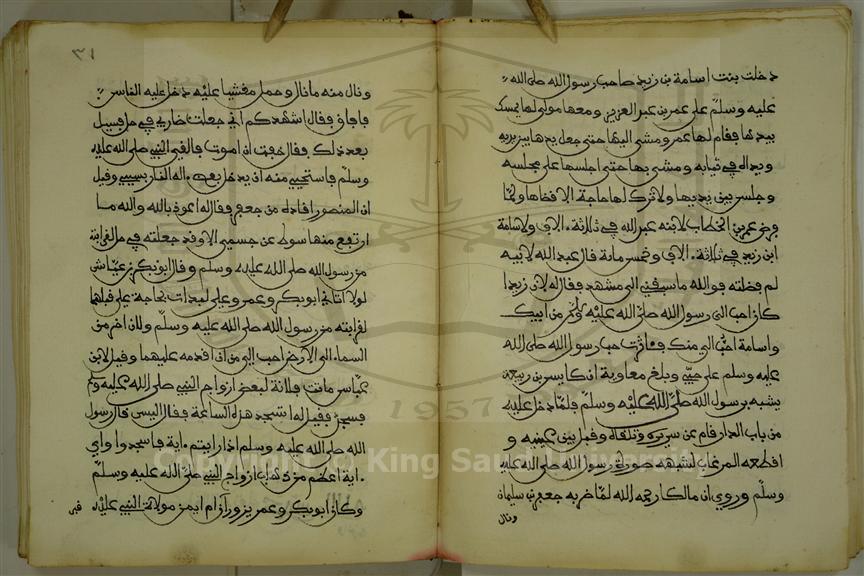 دخلت بنت اسامة بن زيد صاحب رسول الله صلى الله
عليه وسلم على عمر بن عبد العزيز ومعها مولى لها يمسك
بيدها فقام لها عمر ومشى اليها حتى جعل يدها بين يديه
ويداه في ثيابه ومشى بها حتى اجلسها على مجلسه
وجلس بين يديها ولا ترك لها حاجة الا قضاها ولما
فرض عمر بن الخطاب لابنه عبد الله في ثلاثة الاف ولاسامة
ابن زيد في ثلاثة الاف وخمس مائة قال عبد الله لابيه
لم فضلته فو الله ما سبقني الى مشهد فقال له لان زيدا
كان احب الى رسول الله صلى الله عليه وسلم من ابيك
واسامة احب اليه منك فآثرت حب رسول الله صلى الله
عليه وسلم على حبي وبلغ معاوية ان كابس بن ربيعة
يشبه برسول الله صلى الله عليه وسلم فلما دخل عليه
من باب الدار قام عن سريره وتلقاه وقبل بين عينيه و
اقطعه المرغاب لشبهه صورة رسول الله صلى الله عليه
وسلم وروي ان مالكا رحمه الله لما ضربه جعفر بن سليمان
ونال
٣١
ونال منه ما نال وحمل مغشيا عليه دخل عليه الناس
فافاق فقال اشهدكم اني جعلت ضاربي في حل فسيل
بعد ذلك فقال خفت ان اموت فالقى النبي صلى الله عليه
وسلم فاستحيي منه ان يدخل بعض اله النار بسببي وقيل
ان المنصور اقاده من جعفر فقال له اعوذ بالله والله ما
ارتفع منها سوط عن جسمي الا وقد جعلته في حل لقرابته
من رسول الله صلى الله عليه وسلم وقال ابو بكر بن عياش
لو اتاني ابو بكر وعمر وعلي لبدات بحاجة علي قبلها
لقرابته من رسول الله صلى الله عليه وسلم ولان اخر من
السماء الى الارض احب الي من ان اقدمه عليهما وقيل لابن
عباس ماتت فلانة لبعض ازواج النبي صلى الله عليه وسلم
فسجد فقيل له اتسجد هذه الساعة فقال اليس قال رسول
الله صلى الله عليه وسلم اذا رايتم اية فاسجدوا واي
اية اعظم من ذهاب ازواج النبي صلى الله عليه وسلم
وكان ابو بكر وعمر يزوران ام ايمن مولاة النبي عليه
Copyright © King Saud University
1957